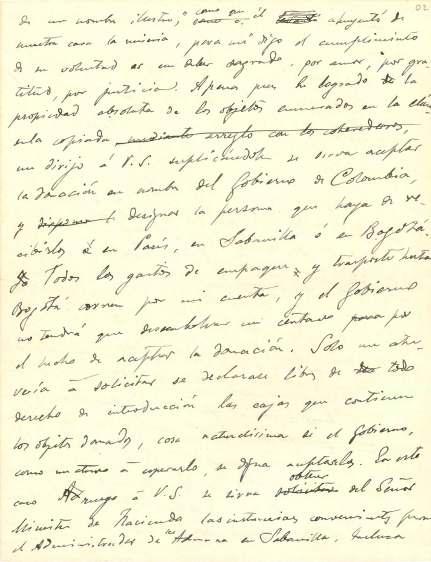 02
de un nombre ilustre," como en el ahuyentó de
nuestra casa la miseria, para mí digo el cumplimiento
de su voluntad es un deber sagrado. por amor, por gra-
titud, por justicia. Apenas pues he logrado la
propiedad absoluta de los objetos enumerados en la cláu-
sula copiada mediante arreglo con los coherederos,
me dirijo á V.S. suplicándole se sirva aceptar
la donación en nombre del Gobierno de Colombia,
y designar la persona que haya de re-
cibirlos ó en París, en Sabanilla ó en Bogotá.
Todos los gastos de empaque, y trasporte hasta
Bogotá corren por mi cuenta, y el Gobierno
no tendrá que desembolsar un centavo por
el hecho de aceptar la donación. Solo me atre-
vería á solicitar se declarase libres de todo
derecho de introducción las cajas que contienen
los objetos donados, cosa naturalísima si el Gobierno,
como me atrevo á esperarlo, se digna aceptarlos. En este
caso ruego á V.S. se sirva obtener del Señor
Ministro de Hacienda las instancias convenientes para
el Administrador de la Aduana en Sabanilla.